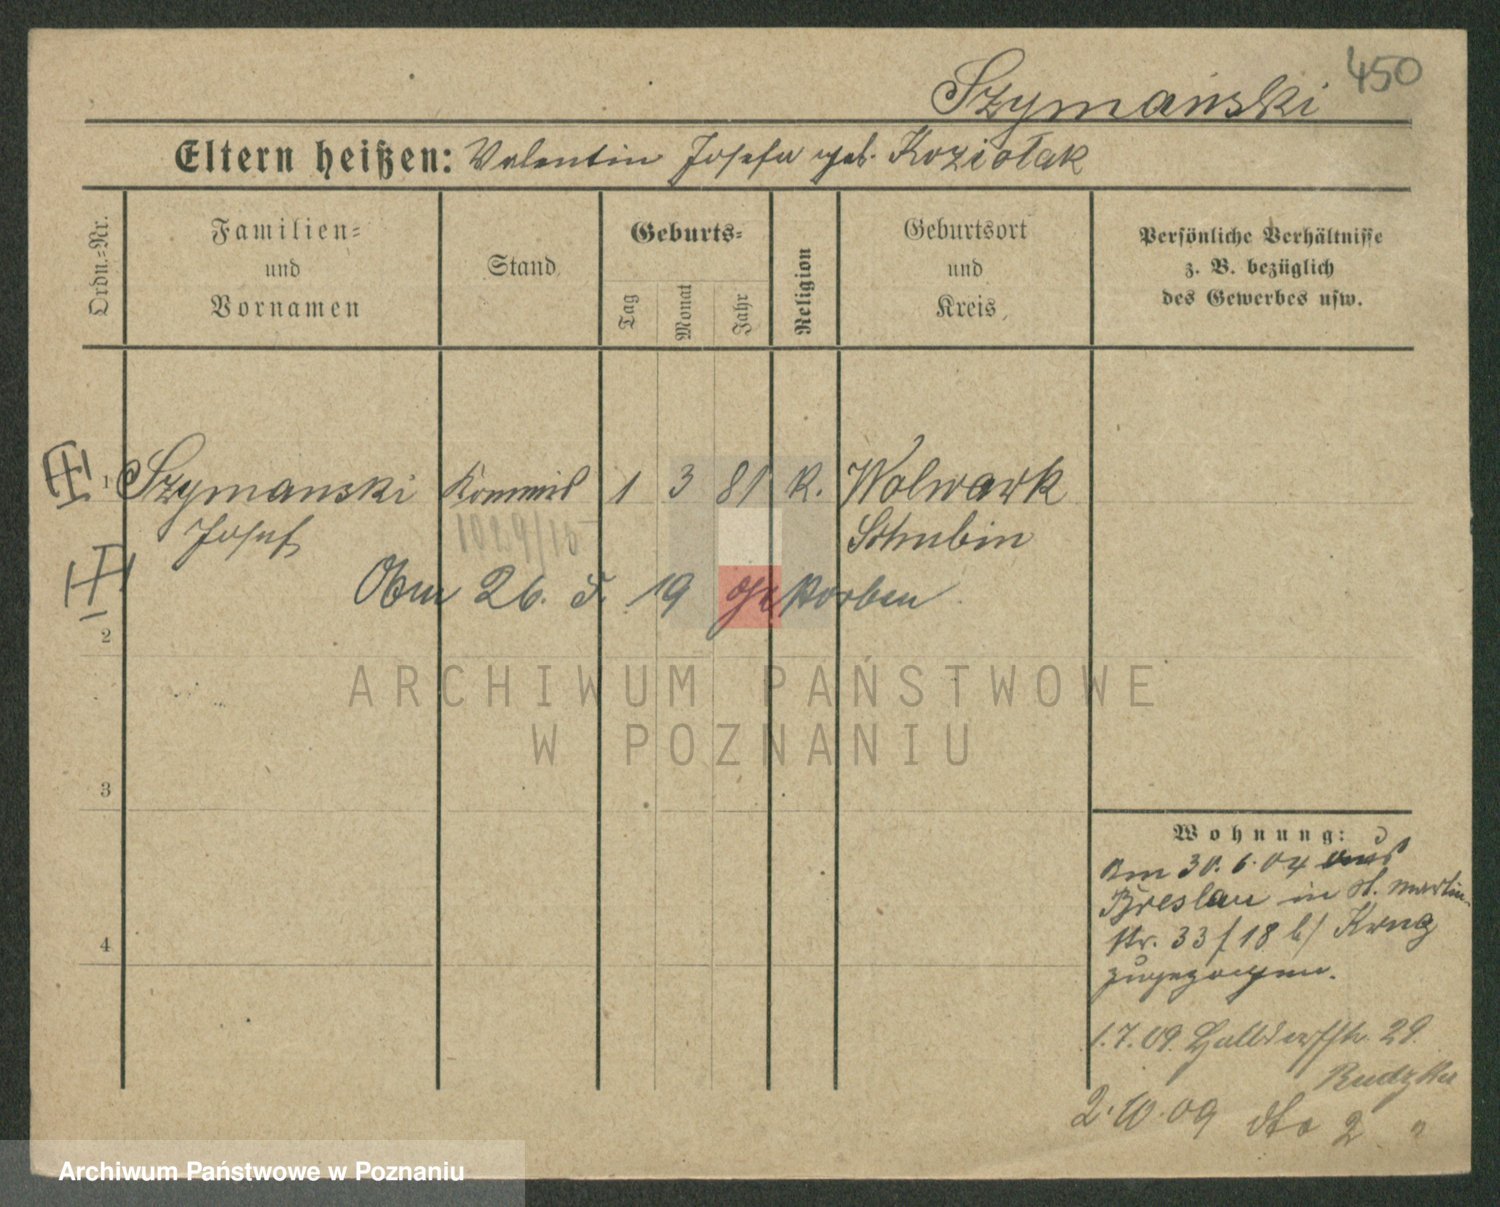 450
Szymański
Eltern heißen: Valentin Josefa geb. Koziołak
Ordn.-Nr.
Familien-
und
Vornamen
Stand
Geburts-
Tag
Monat
Jahr
Religion
Geburtsort
und
Kreis
Persönliche Verhältnisse
z. B. bezüglich
des Gewerbes usw.
1 Szymanski Kommis 1 3 81 k. Wolwark
Josef Schubin
1029/15
26. 5. 19 gestorben
2
ARCHIWUM PAŃSTWOWE
W POZNANIU
3
4
Wohnung:
Am 30. 6. 04 aus
Breslau in St. Martin-
str. 33 18 b/ Krug
zugezogen.
1. 7. 09. 29.
2. 10. 09 dto 2 "
Archiwum Państwowe w Poznaniu